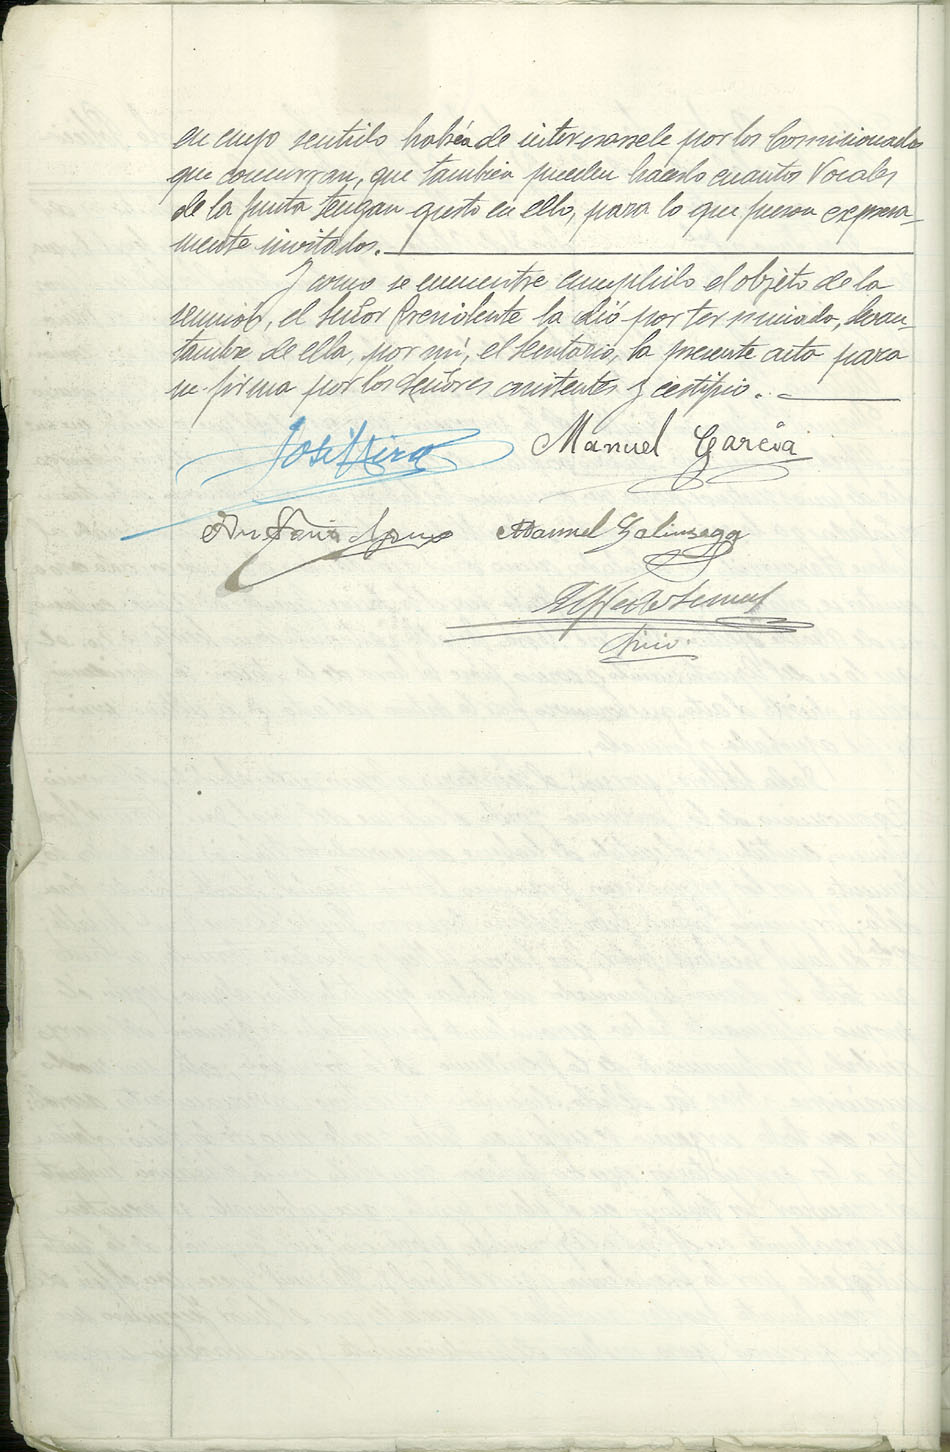 en cuyo sentido habrá de interesarsele por los Comisionados
que concurran, que tambien pueden hacerlo cuantos Vocales
de la Junta tengan gusto en ello, para lo que fueron expresa-
mente invitados.
Y como se encuentre cumplido el objeto de la
reunión, el señor Presidente la dió por terminada, levan-
tandose de ella, por mí, el Secretario, la presente acta para
su firma por los señores asistentes y certifico.
José
Manuel García
Antonio
Manuel Galinsoga
Alfredo
Srio.